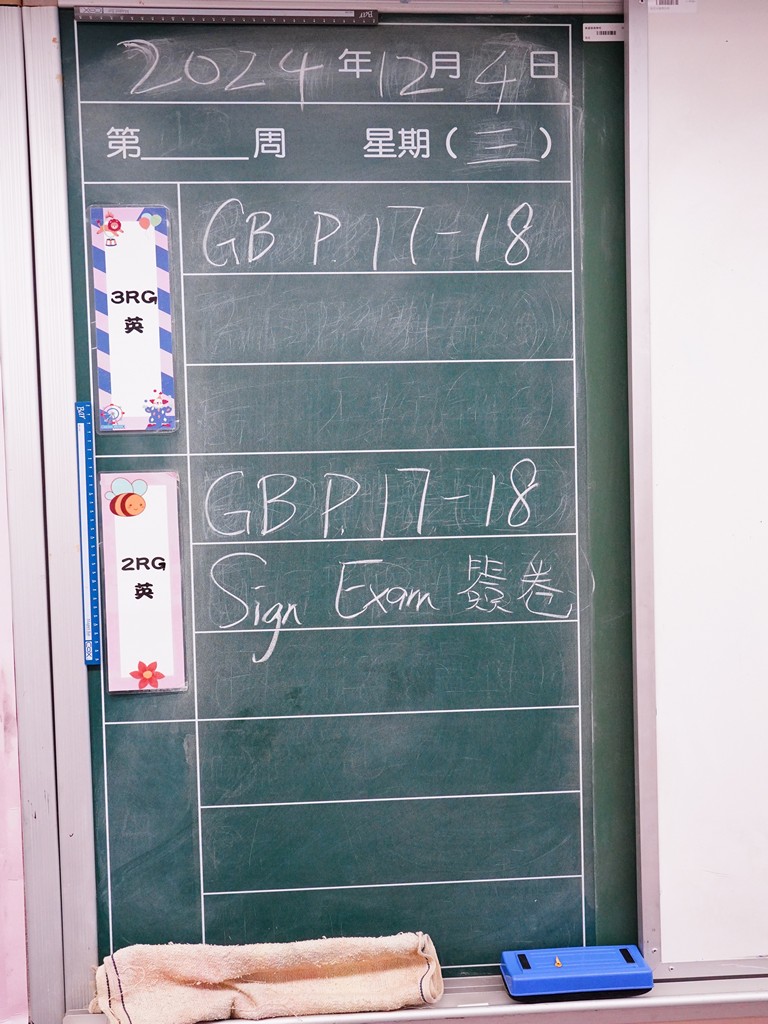 2024年12月4日
第____周 星期(三)
3RG
英
GB P.17-18
2RG
英
GB P.17-18
Sign Exam 簽卷